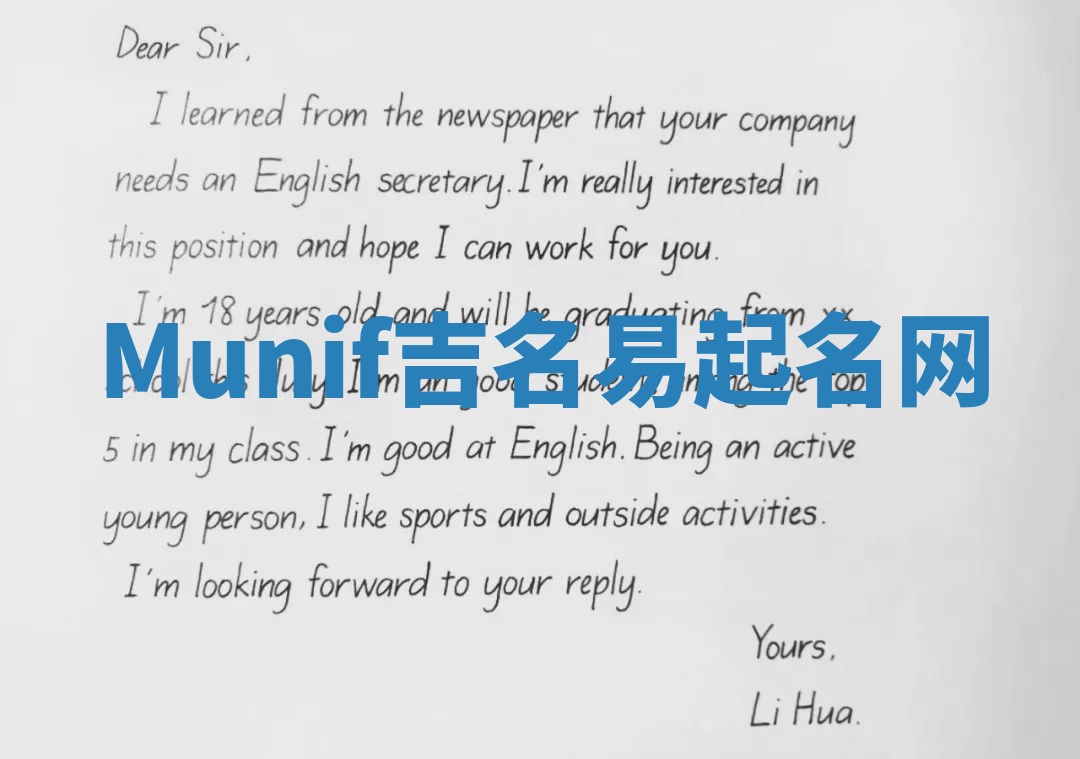 Dear Sir,
I learned from the newspaper that your company
needs an English secretary. I'm really interested in
this position and hope I can work for you.
I'm 18 years old and will be graduating from xx
Munif吉名易起名网
school this July. I'm an good student among the top
5 in my class. I'm good at English. Being an active
young person, I like sports and outside activities.
I'm looking forward to your reply.
Yours,
Li Hua.